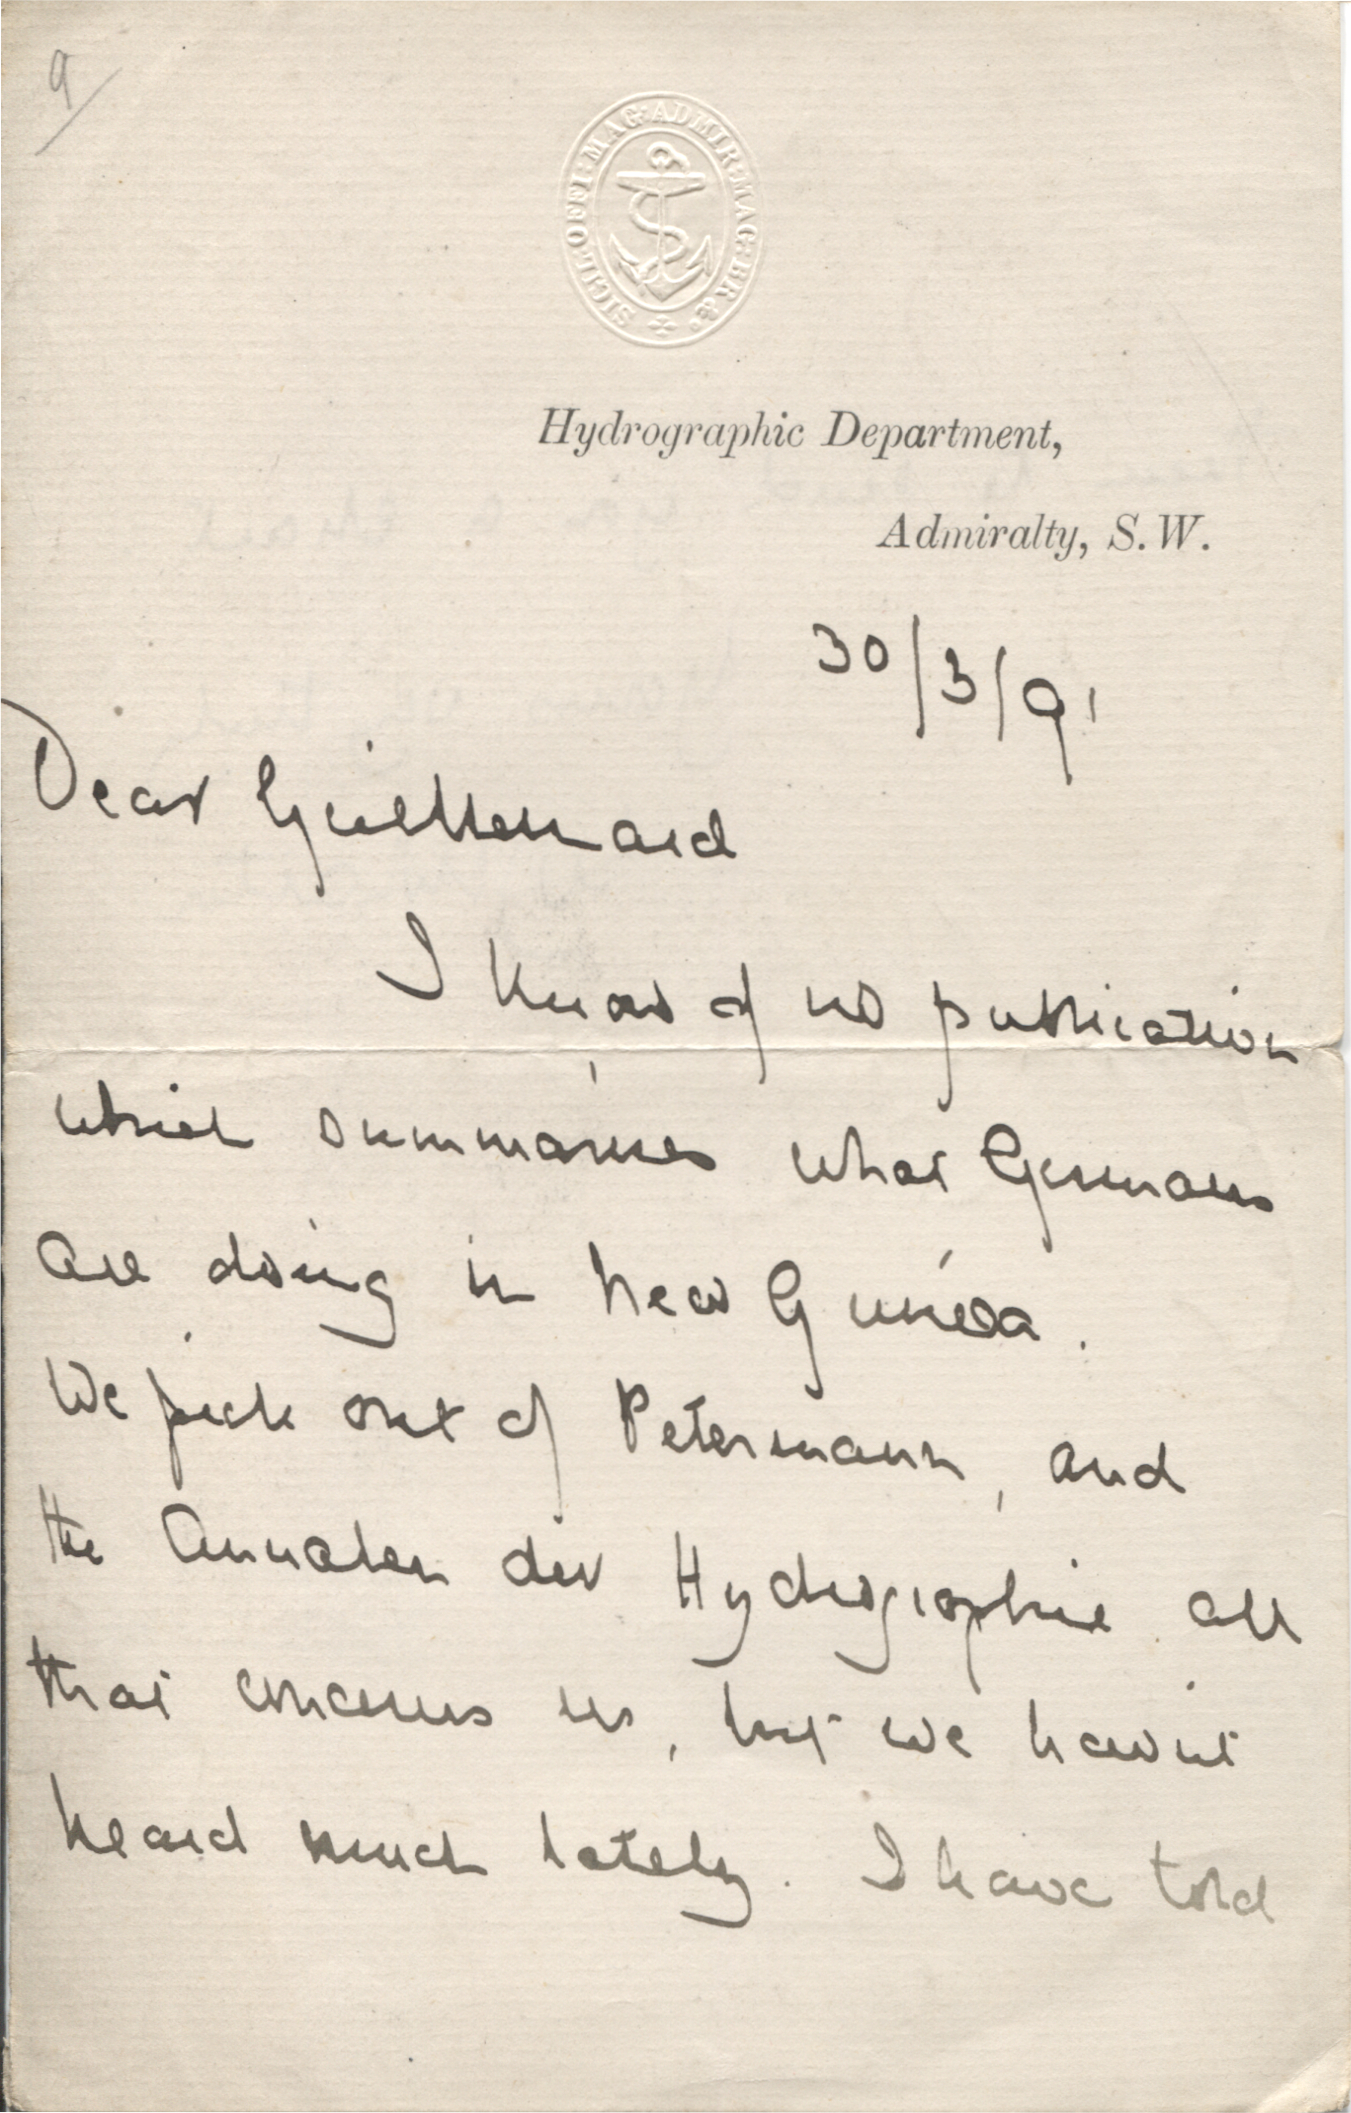 9/
SIGIL: OFFI: MAG: ADMIR: MAG: BR: &c
Hydrographic Department,
Admiralty, S.W.
30/3/91
Dear Guillemard
I know of no publication
which summarises what Germans
are doing in New Guinea.
We pick out of Petermann, and
the Annalen der Hydrographie all
that concerns us, but we havn't
heard much lately. I have told